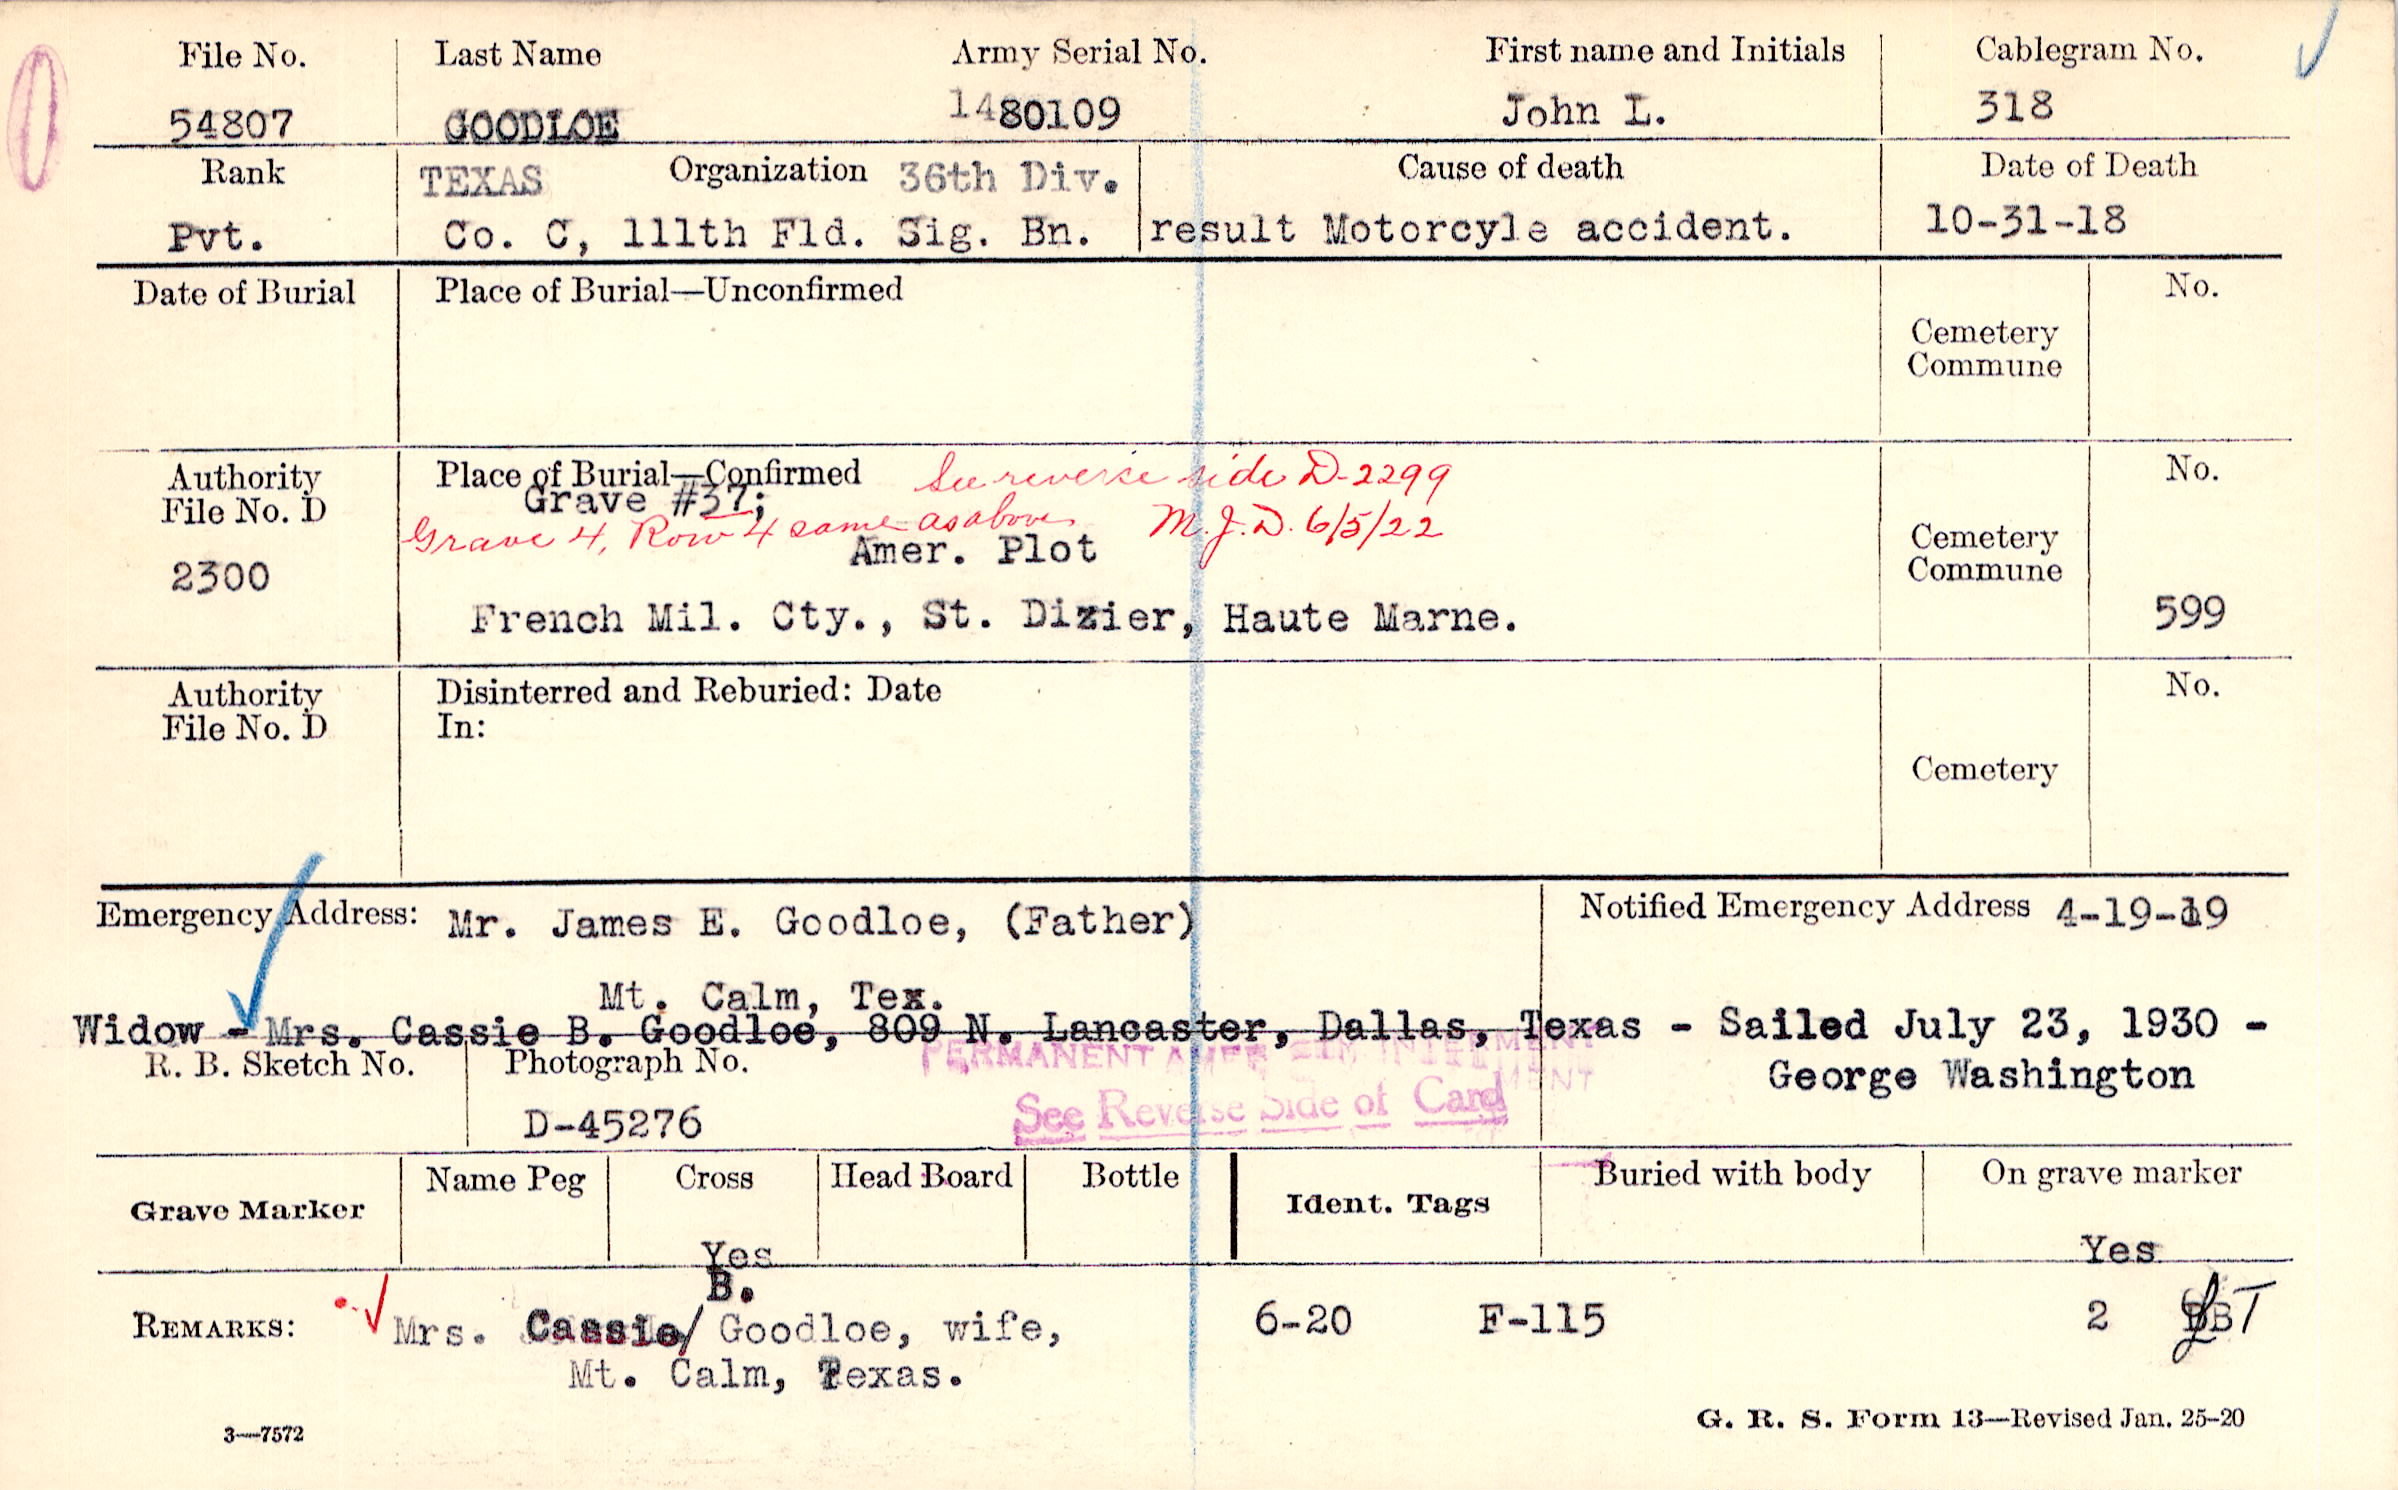 File No. Last Name Army Serial No. First name and Initials Cablegram No.
54807 GOODLOE 1480109 John L. 318
Rank TEXAS Organization 36th Div. Cause of death Date of Death
Pvt. Co. C, 111th Fld. Sig. Bn. result Motorcyle accident. 10-31-18
Date of Burial Place of Burial—Unconfirmed No.
Cemetery
Commune
Authority Place of Burial—Confirmed See reverse side D-2299 No.
File No. D Grave #37;
Grave 4, Row 4 same as above M.J.D. 6/5/22
Amer. Plot Cemetery
2300 Commune
French Mil. Cty., St. Dizier, Haute Marne. 599
Authority Disinterred and Reburied: Date No.
File No. D In:
Cemetery
Emergency Address: Mr. James E. Goodloe, (Father) Notified Emergency Address 4-19-19
Mt. Calm, Tex.
Widow - Mrs. Cassie B. Goodloe, 809 N. Lancaster, Dallas, Texas - Sailed July 23, 1930 -
R. B. Sketch No. Photograph No. PERMANENT George Washington
D-45276 See Reverse Side of Card
Grave Marker Name Peg Cross Head Board Bottle Ident. Tags Buried with body On grave marker
Yes Yes
B.
REMARKS: Mrs. Cassie/ Goodloe, wife, 6-20 F-115 2
Mt. Calm, Texas.
3—7572 G. R. S. Form 13—Revised Jan. 25-20